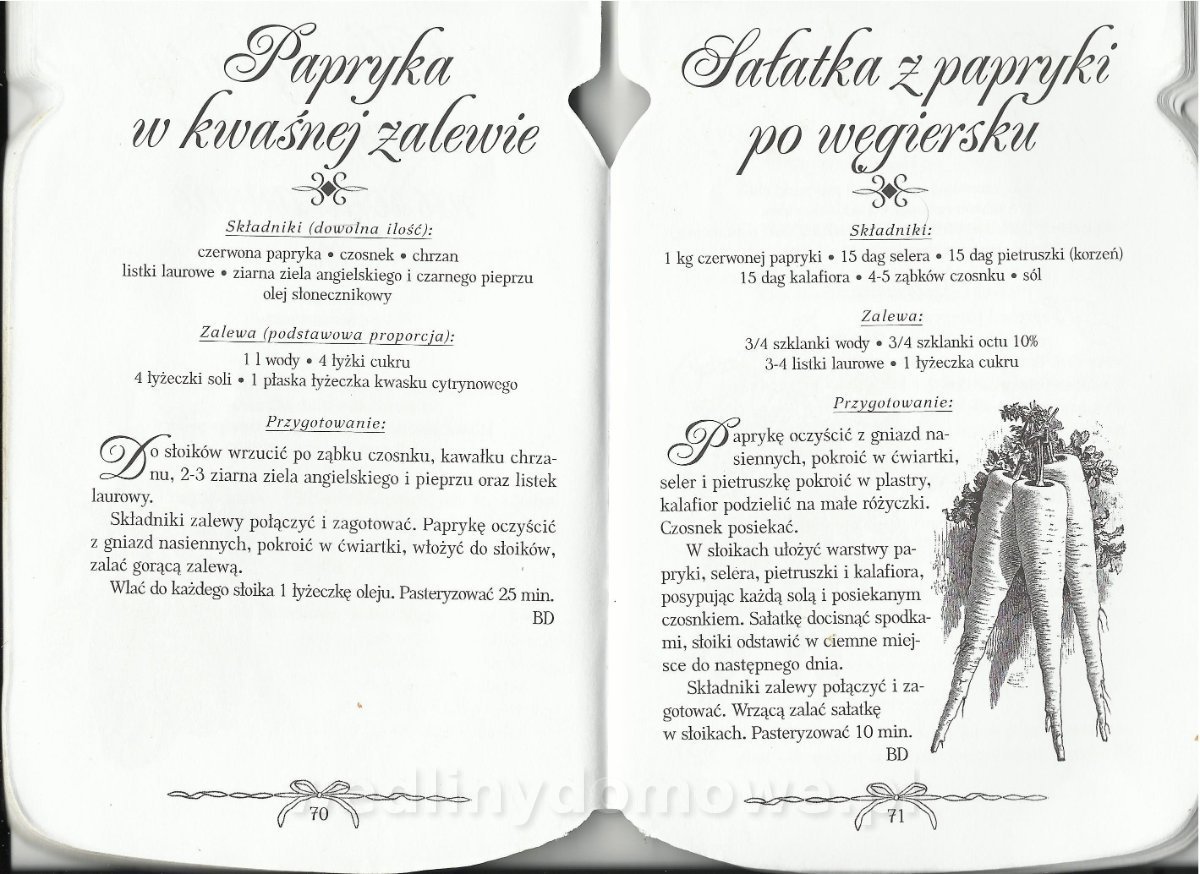 Papryka
w kwaśnej zalewie
Składniki (dowolna ilość):
czerwona papryka • czosnek • chrzan
listki laurowe • ziarna ziela angielskiego i czarnego pieprzu
olej słonecznikowy
Zalewa (podstawowa proporcja):
1 l wody • 4 łyżki cukru
4 łyżeczki soli • 1 płaska łyżeczka kwasku cytrynowego
Przygotowanie:
Do słoików wrzucić po ząbku czosnku, kawałku chrza-
nu, 2-3 ziarna ziela angielskiego i pieprzu oraz listek
laurowy.
Składniki zalewy połączyć i zagotować. Paprykę oczyścić
z gniazd nasiennych, pokroić w ćwiartki, włożyć do słoików,
zalać gorącą zalewą.
Wlać do każdego słoika 1 łyżeczkę oleju. Pasteryzować 25 min.
BD
70
Sałatka z papryki
po węgiersku
Składniki:
1 kg czerwonej papryki • 15 dag selera • 15 dag pietruszki (korzeń)
15 dag kalafiora • 4-5 ząbków czosnku • sól
Zalewa:
3/4 szklanki wody • 3/4 szklanki octu 10%
3-4 listki laurowe • 1 łyżeczka cukru
Przygotowanie:
Paprykę oczyścić z gniazd na-
siennych, pokroić w ćwiartki,
seler i pietruszkę pokroić w plastry,
kalafior podzielić na małe różyczki.
Czosnek posiekać.
W słoikach ułożyć warstwy pa-
pryki, selera, pietruszki i kalafiora,
posypując każdą solą i posiekanym
czosnkiem. Sałatkę docisnąć spodka-
mi, słoiki odstawić w ciemne miej-
sce do następnego dnia.
Składniki zalewy połączyć i za-
gotować. Wrzącą zalać sałatkę
w słoikach. Pasteryzować 10 min.
BD
71
redlinydomowe.pl